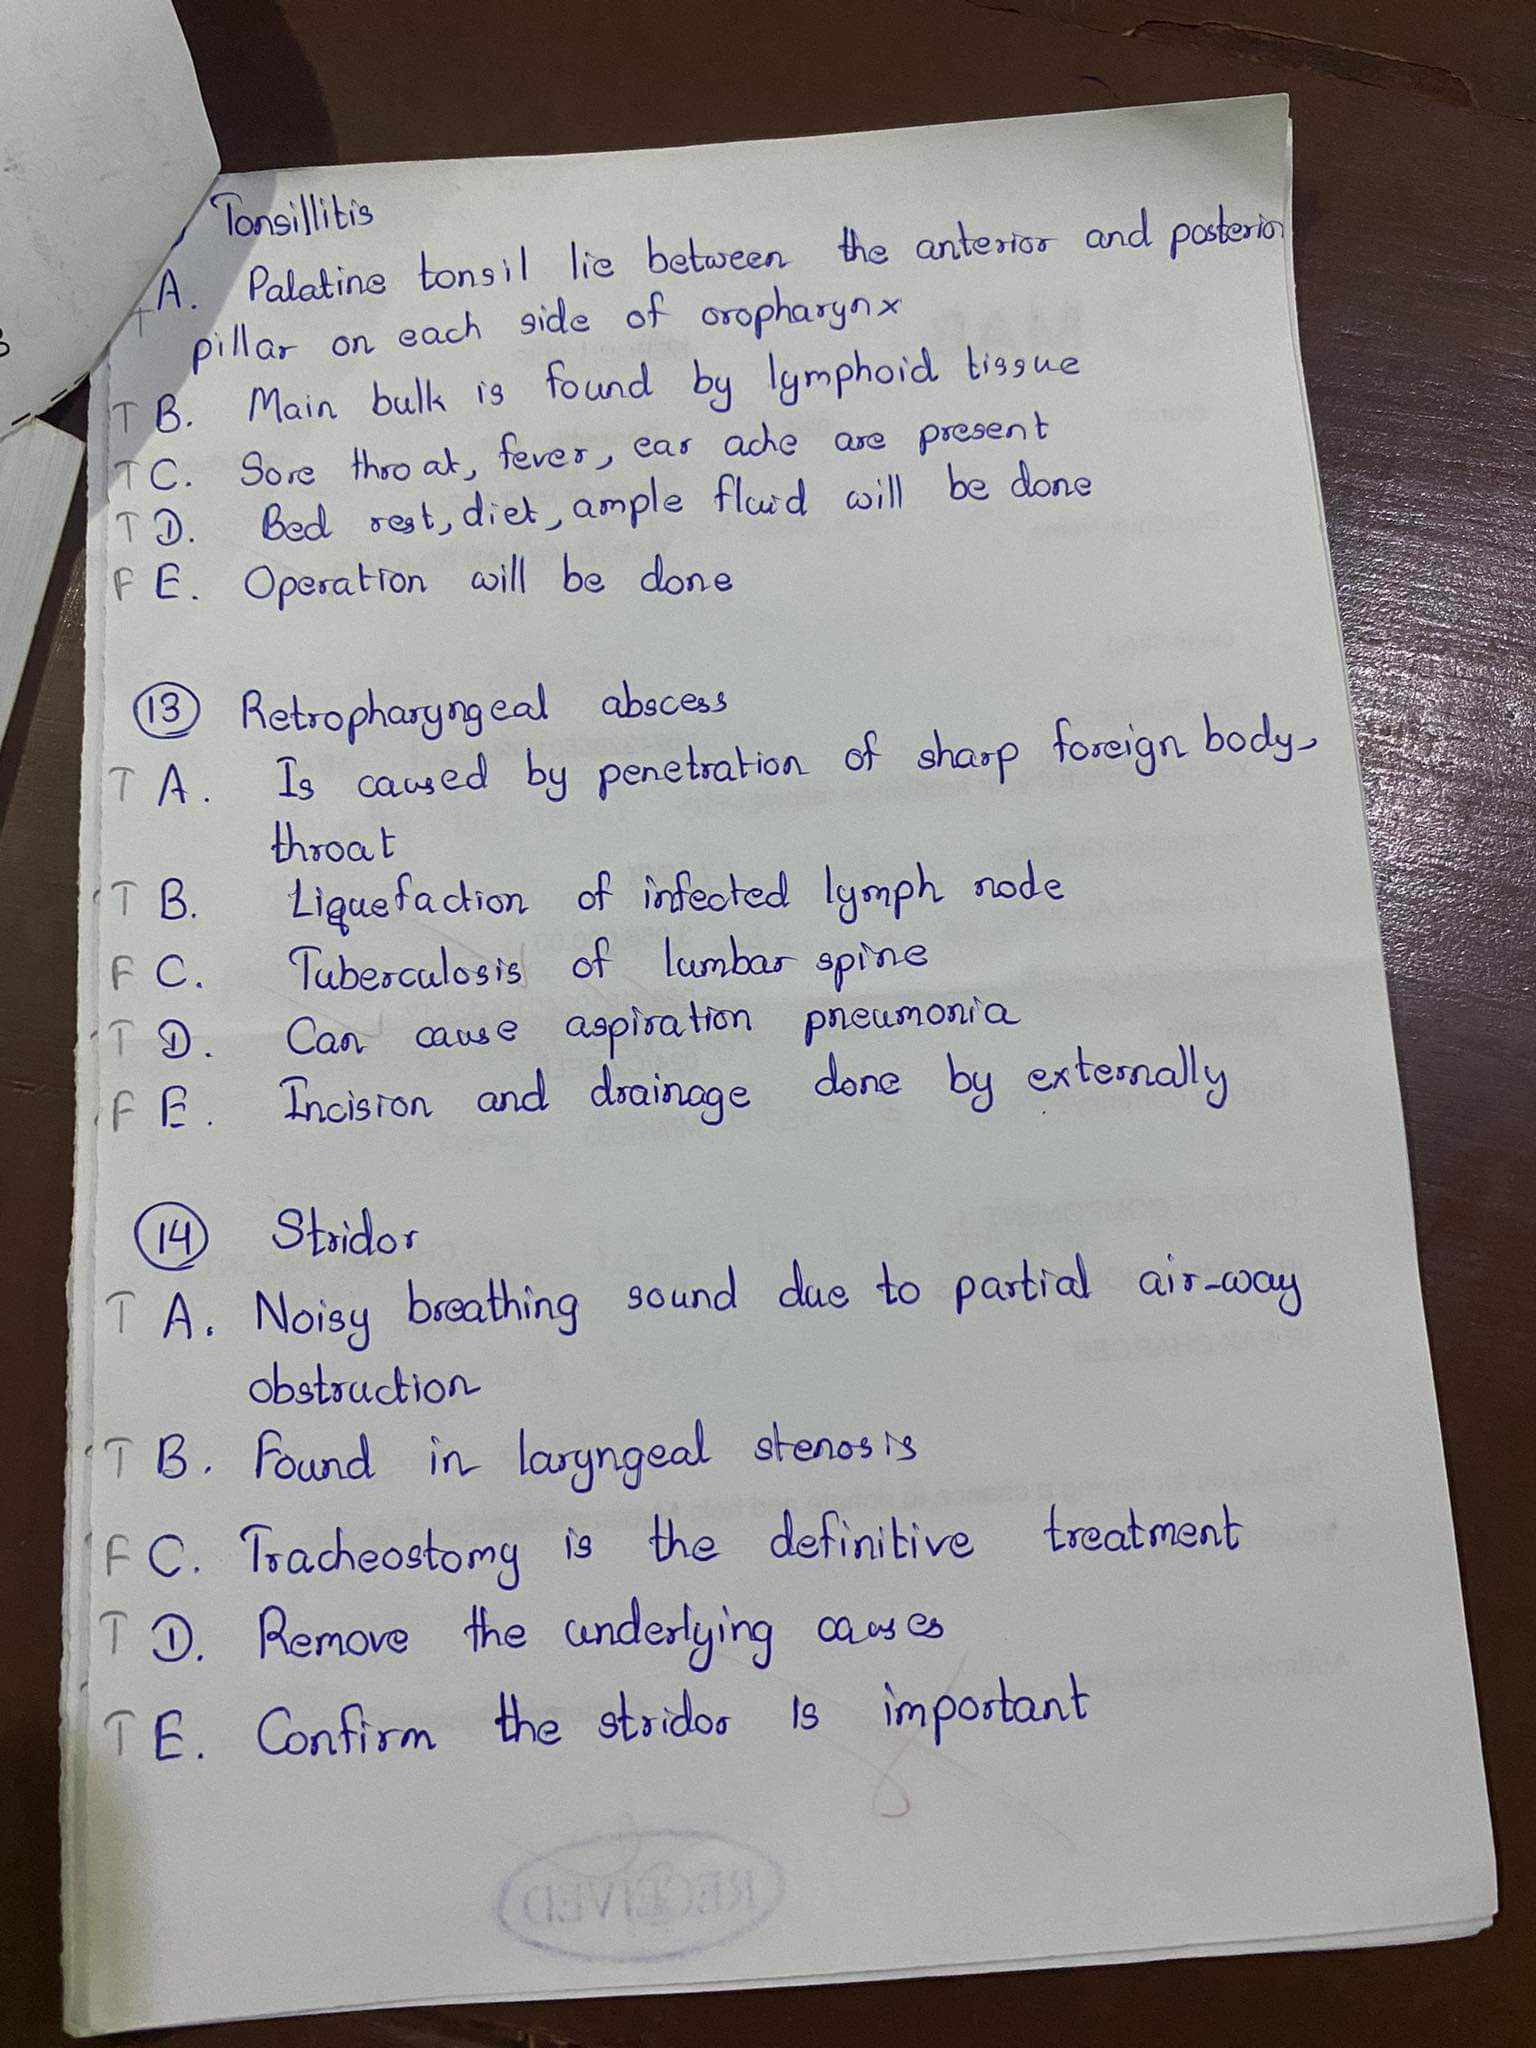 Tonsillitis
T A. Palatine tonsil lie between the anterior and posterior
pillar on each side of oropharynx
T B. Main bulk is found by lymphoid tissue
T C. Sore throat, fever, ear ache are present
T D. Bed rest, diet, ample fluid will be done
F E. Operation will be done
13 Retropharyngeal abscess
T A. Is caused by penetration of sharp foreign body,
throat
T B. Liquefaction of infected lymph node
F C. Tuberculosis of lumbar spine
T D. Can cause aspiration pneumonia
F E. Incision and drainage done by externally
14 Stridor
T A. Noisy breathing sound due to partial air-way
obstruction
T B. Found in laryngeal stenosis
F C. Tracheostomy is the definitive treatment
T D. Remove the underlying causes
T E. Confirm the stridor is important
RECEIVED